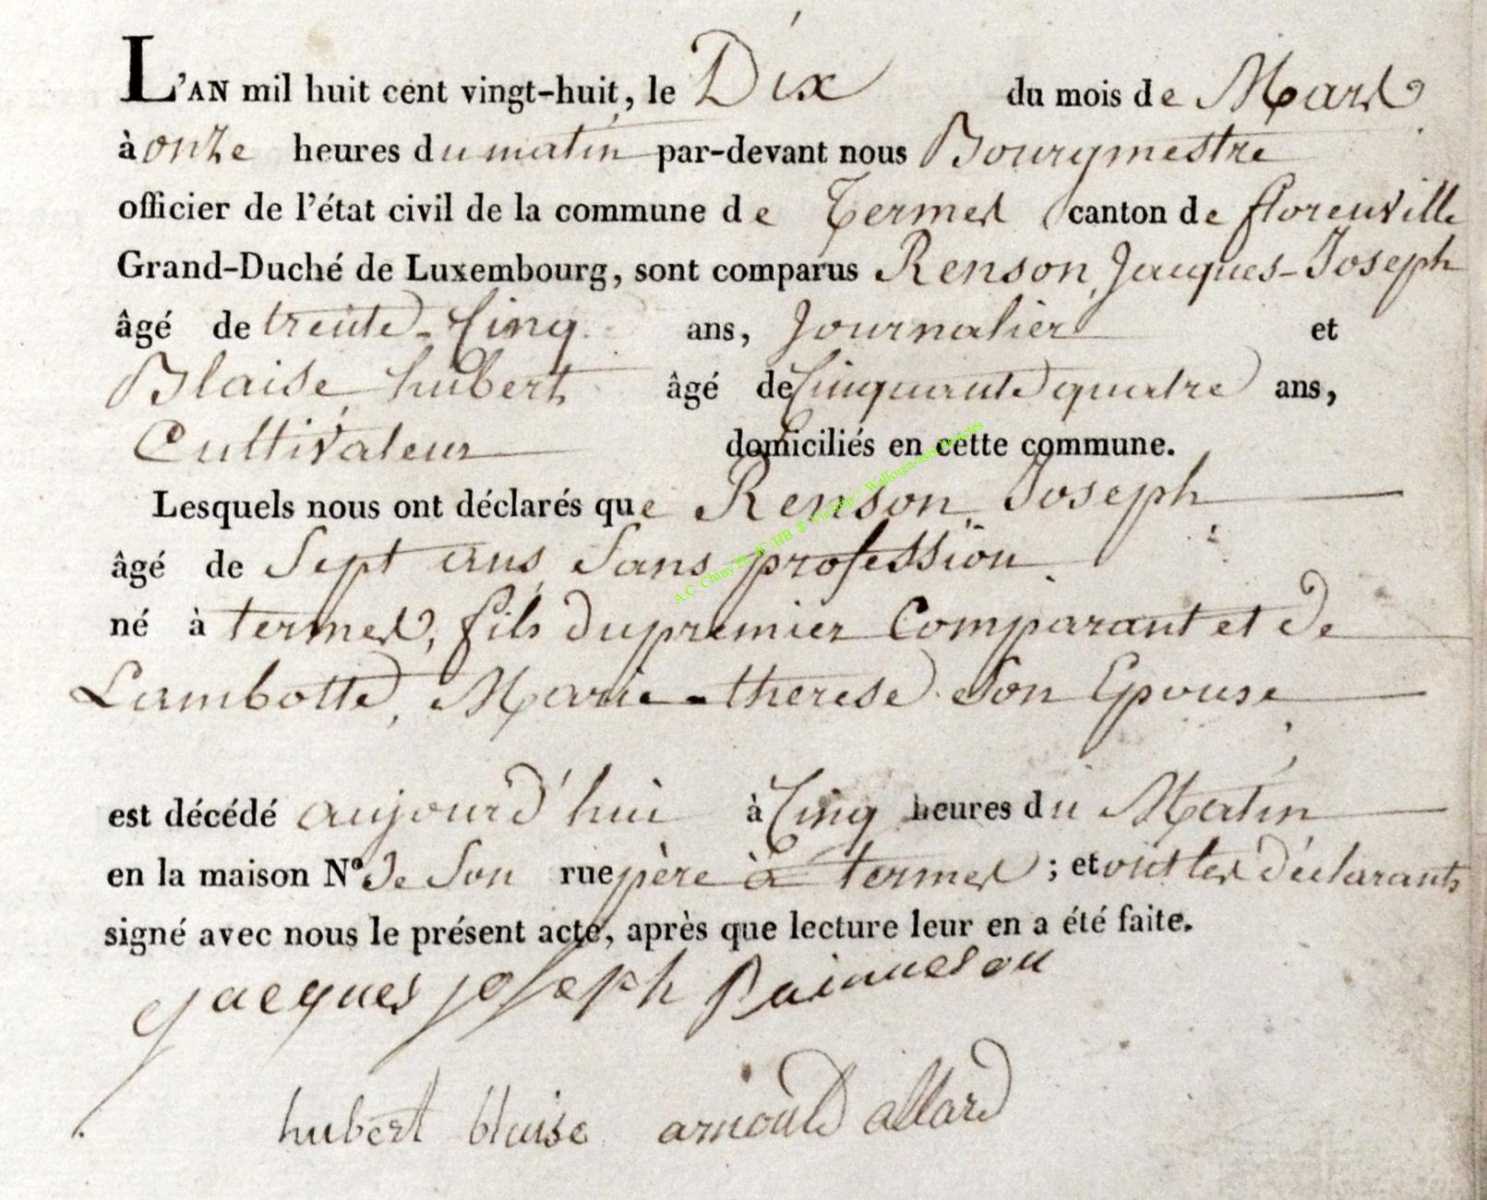 L'AN mil huit cent vingt-huit, le Dix du mois de Mars
à onze heures du matin par-devant nous Bourgmestre
officier de l'état civil de la commune de Termes canton de florenville
Grand-Duché de Luxembourg, sont comparus Renson, Jacques-Joseph
âgé de trente-Cinq ans, Journalier et
Blaise hubert âgé de Cinquante quatre ans,
Cultivateur domiciliés en cette commune.
Lesquels nous ont déclarés que Renson Joseph
âgé de Sept ans, Sans profession
né à termes, fils du premier Comparant et de
Lambotte, Marie-therese Son Epouse
est décédé aujourd'hui à Cinq heures du Matin
en la maison Nº de Son rue père à termes ; et ont les déclarants
signé avec nous le présent acte, après que lecture leur en a été faite.
jacques joseph
hubert blaise arnould allard